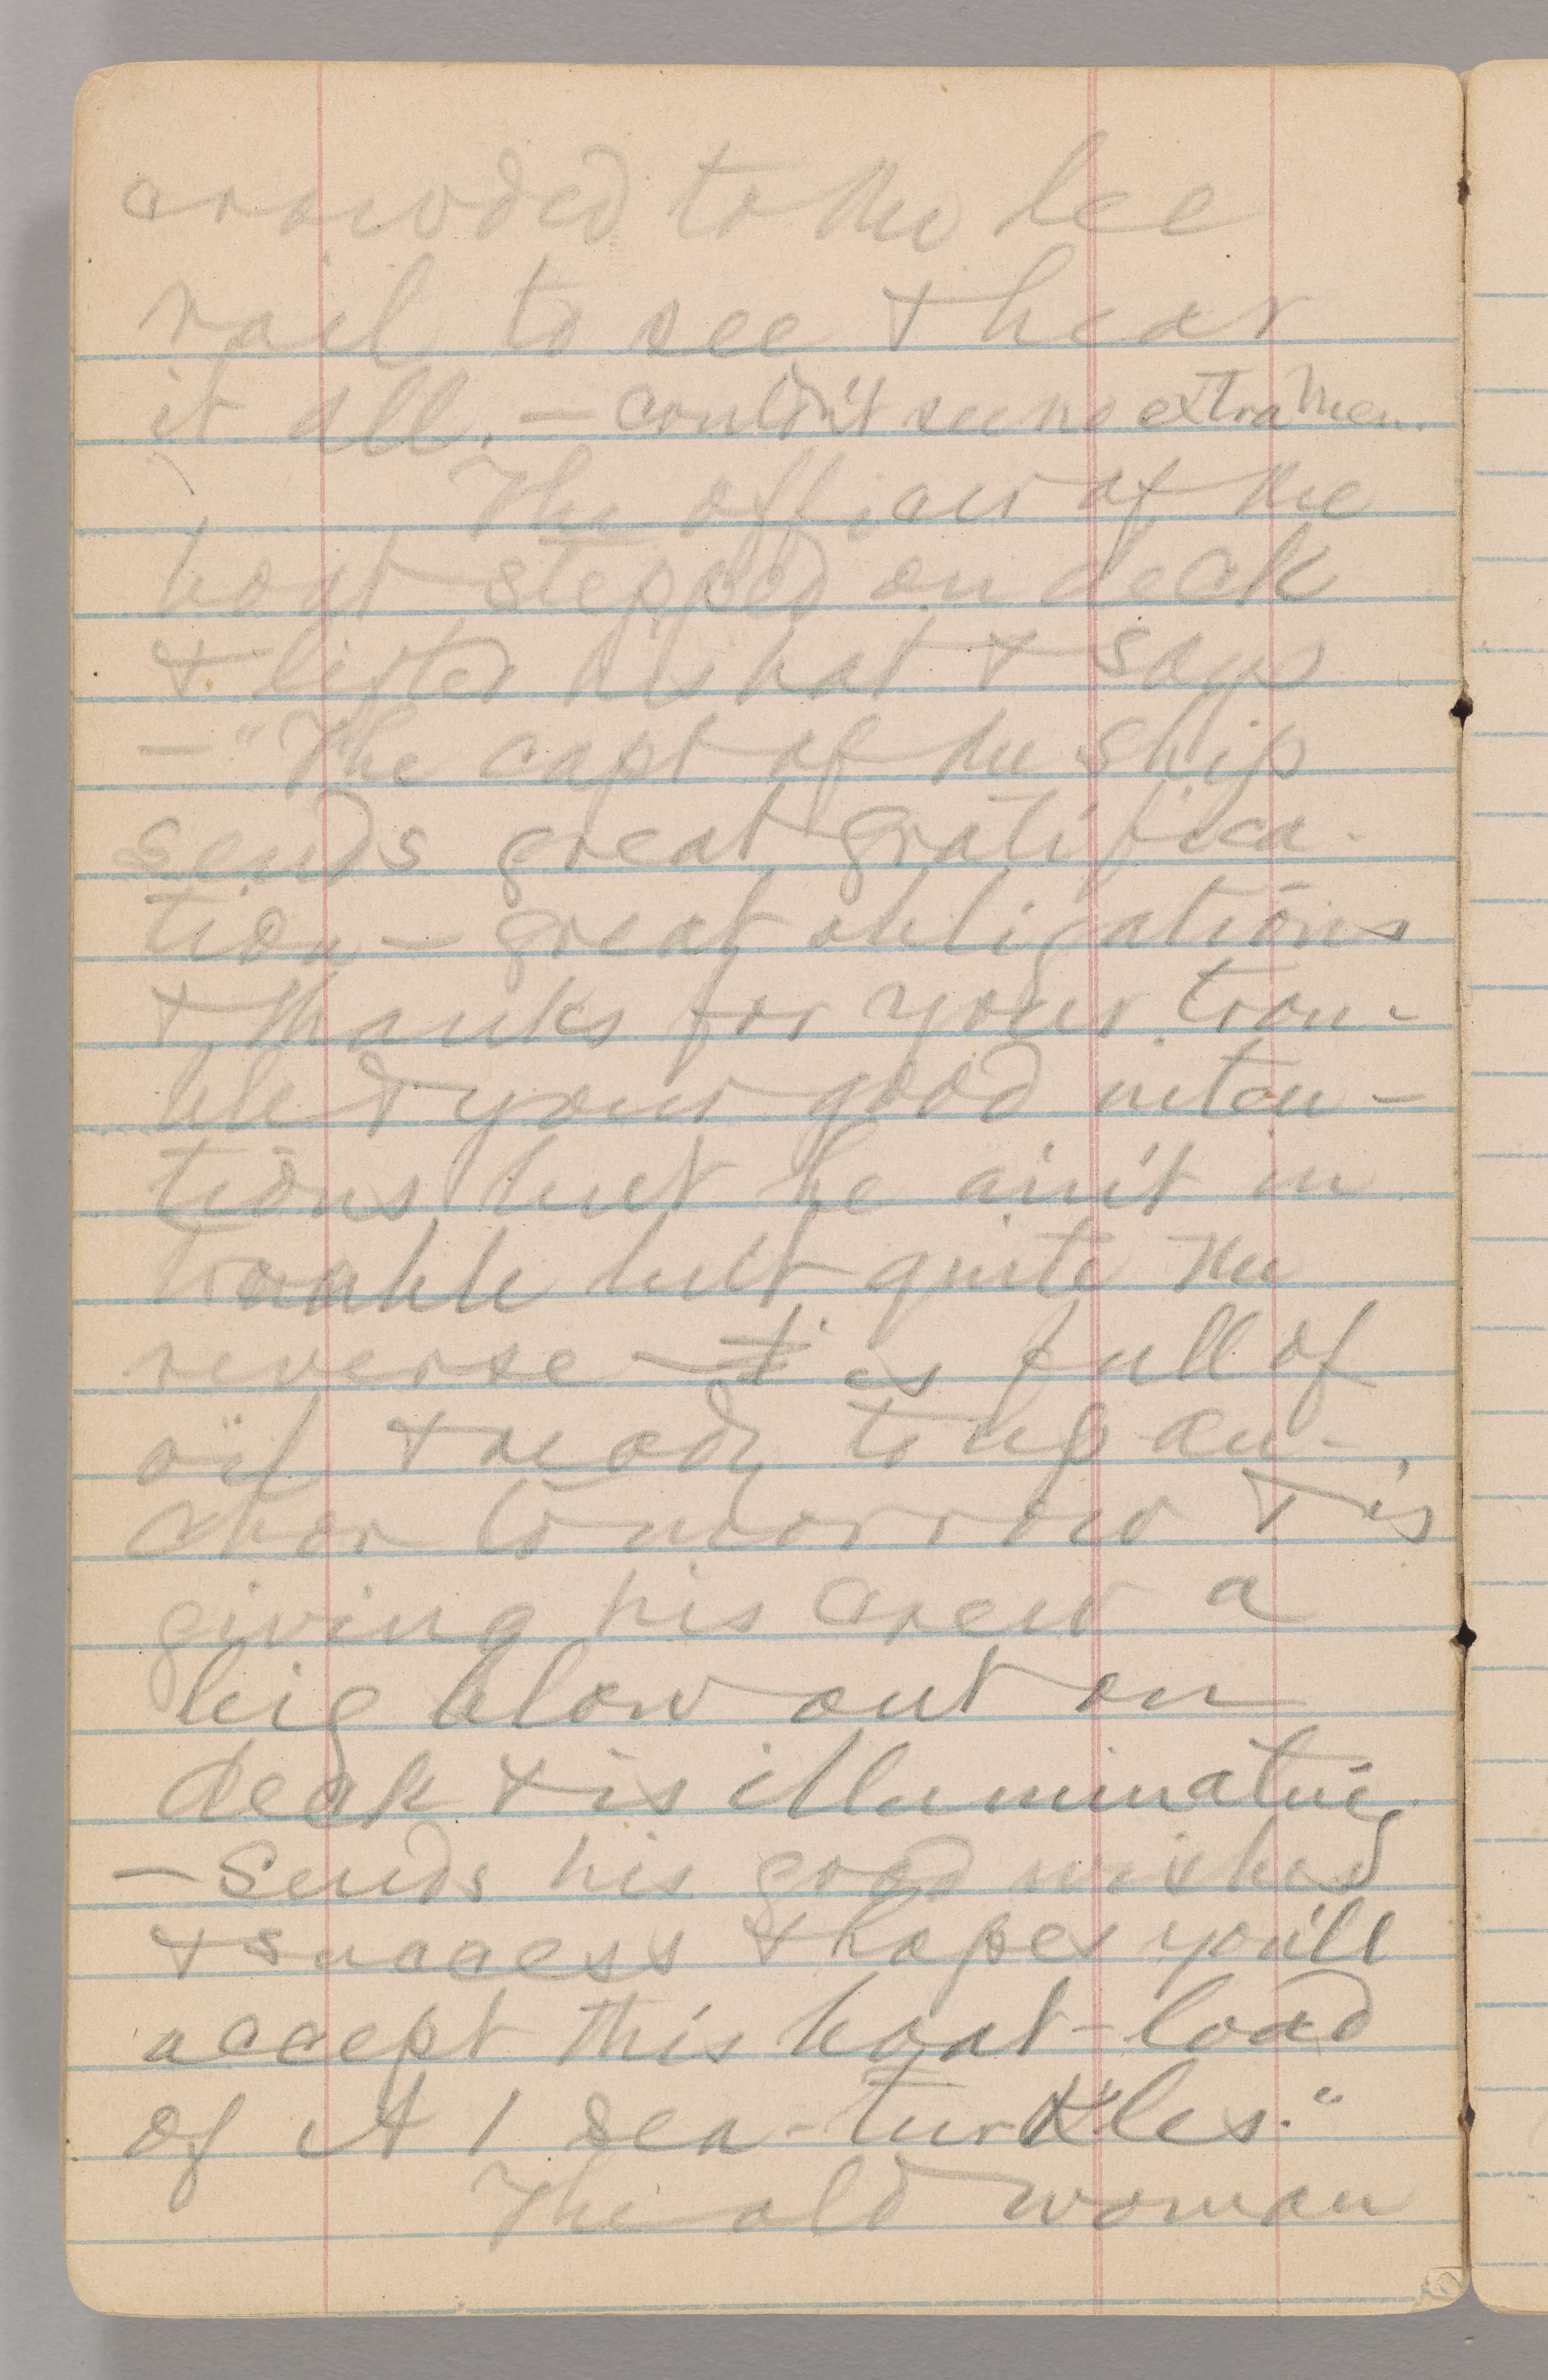 crowded to the lee
rail to see & hear
it all. — couldn't see no extra men.
The officer of the
boat stepped on deck
& lifted his hat & says
— "The capt of the ship
sends great gratifica-
tion — great obligations
& thanks for your trou-
ble & your good inten-
tions but he ain't in
trouble but quite the
reverse — is full of
oil & ready to up an-
chor tomorrow & is
giving his crew a
big blow out on
deck & is illuminating
— Sends his good wishes
& success & hopes you'll
accept this boat-load
of A 1 sea-turkles."
The old woman